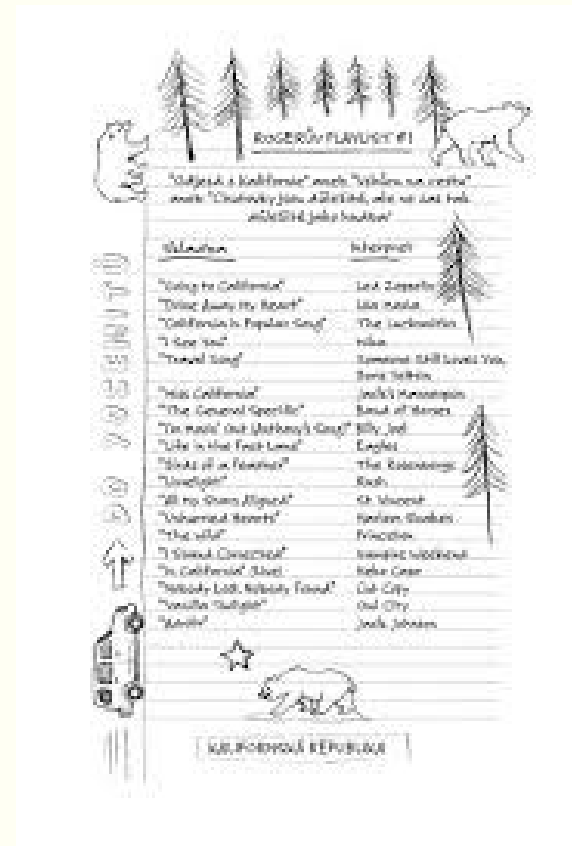 ROGERŮV PLAYLIST #1
"Odjezd z Kalifornie" aneb "Vzhůru na cestu"
aneb "Cheeseky jsou důležité, ale ne zas tak
důležité jako hudba"
Skladba Interpret
"Going to California" Led Zeppelin
"Drive Away My Heart" Lisa
"California Is Popular Song" The Lucksmiths
"I See You" Mika
"Travel Song" Someone Still Loves You,
Boris Yeltsin
"Miss California" Jack's Mannequin
"The General Specific" Band of Horses
"I'm Movin' Out (Anthony's Song)" Billy Joel
"Life in the Fast Lane" Eagles
"Birds of a Feather" The Rosenbergs
"Limelight" Rush
"All My Stars Aligned" St. Vincent
"Unharmed Hearts" Harlem Shakes
"The Wild" Princeton
"I Stand Corrected" Vampire Weekend
"In California" (live) Neko Case
"Nobody Lost, Nobody Found" Cut Copy
"Vanilla Twilight" Owl City
Jack Johnson
DO YOSEMITŮ
KALIFORNSKÁ REPUBLIKA